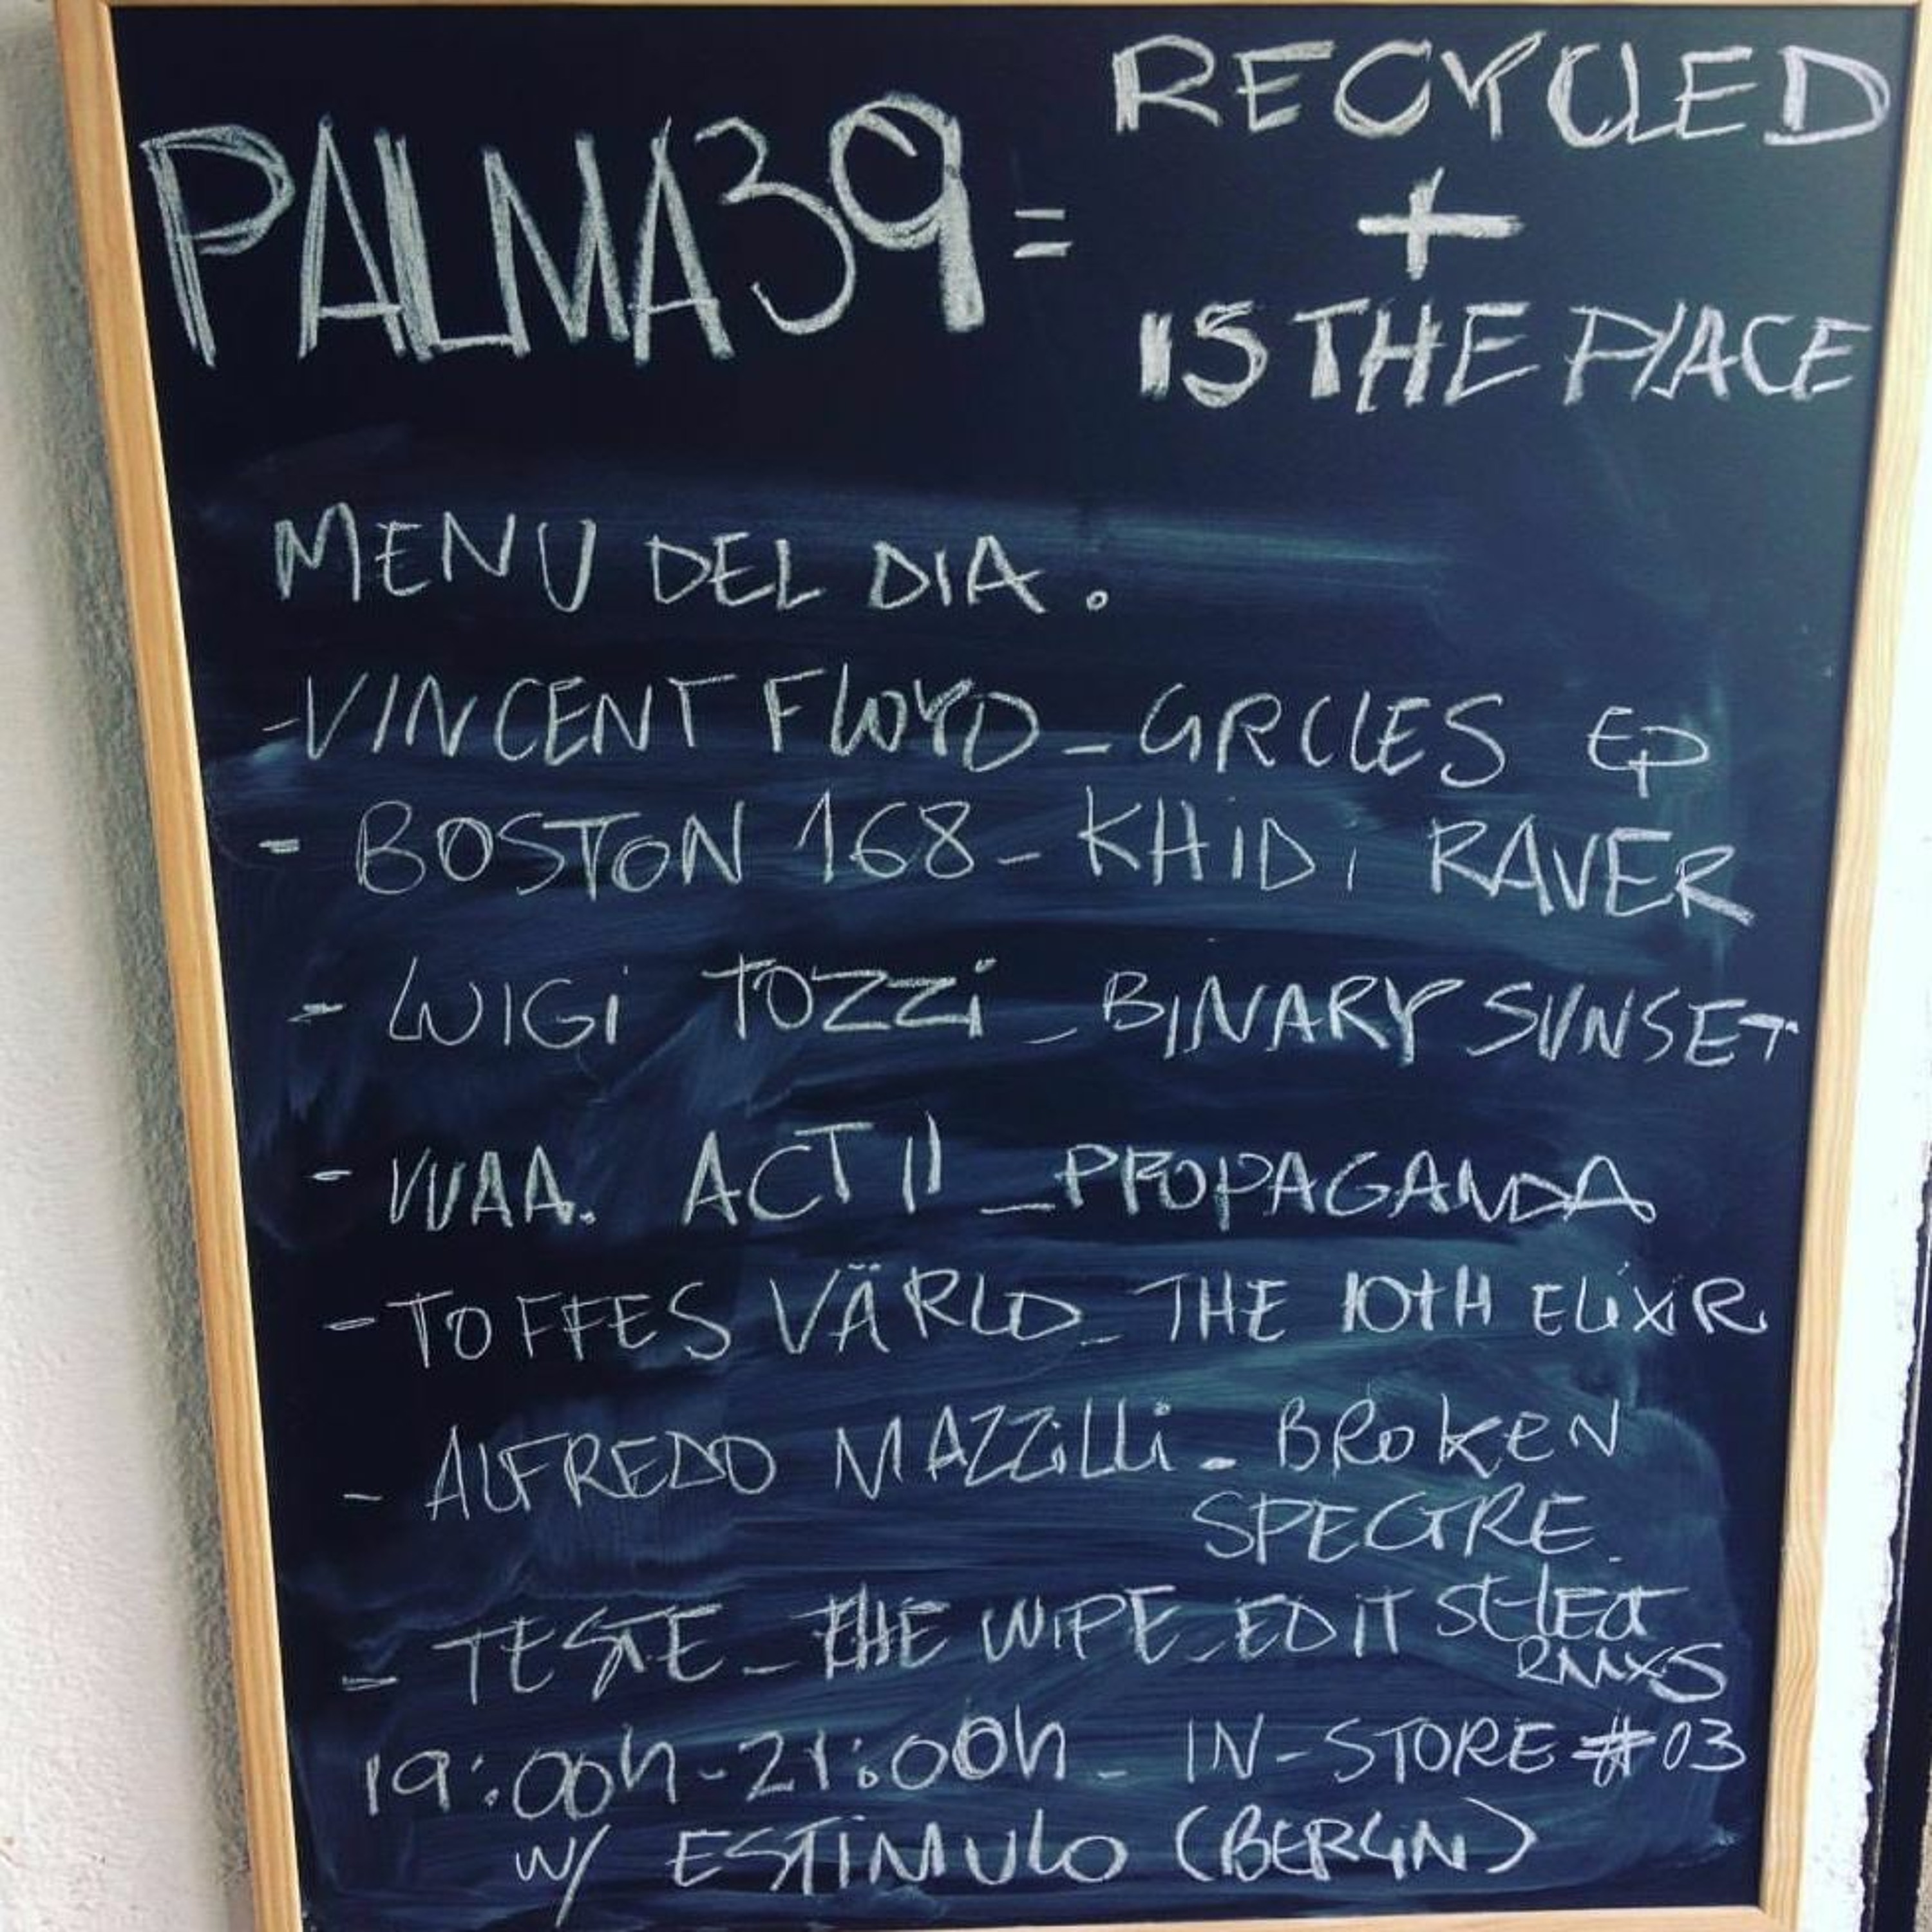 RECYCLED
PALMA39 = +
IS THE PLACE
MENU DEL DIA.
-VINCENT FLOYD - CIRCLES EP
- BOSTON 168 - KHIDI RAVER
- LUIGI TOZZI - BINARY SUNSET
- VVAA. ACT II - PROPAGANDA
- TOFFES VÄRLD - THE 10TH ELIXIR
- ALFREDO MAZZILLI - BROKEN
SPECTRE
- TESTE - THE WIPE - EDIT SELECT
RMXS
19:00h - 21:00h - IN-STORE #03
W/ ESTIMULO (BERLIN)